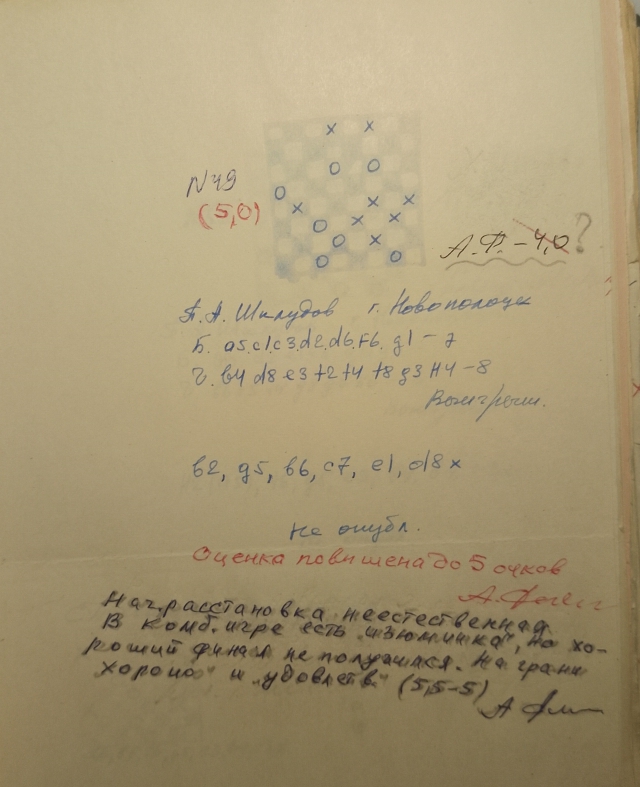 N49
(5,0)
А.Ф. – 4,0 ?
г. Новополоцк
Б. а5.с1.с3.d2.d6.f6.g1 – 7
Ч. b4 d8 e3 f2 f4 f8 g3 H4 – 8
Выигрыш.
b2, g5, b6, c7, e1, d8 x
Не опубл.
Оценка повышена до 5 очков
Нач. расстановка неестественная.
В комб. игре есть "изюминка", но хо-
роший финал не получился. На грани
"хорошо" и "удовлетв." (5,5–5)